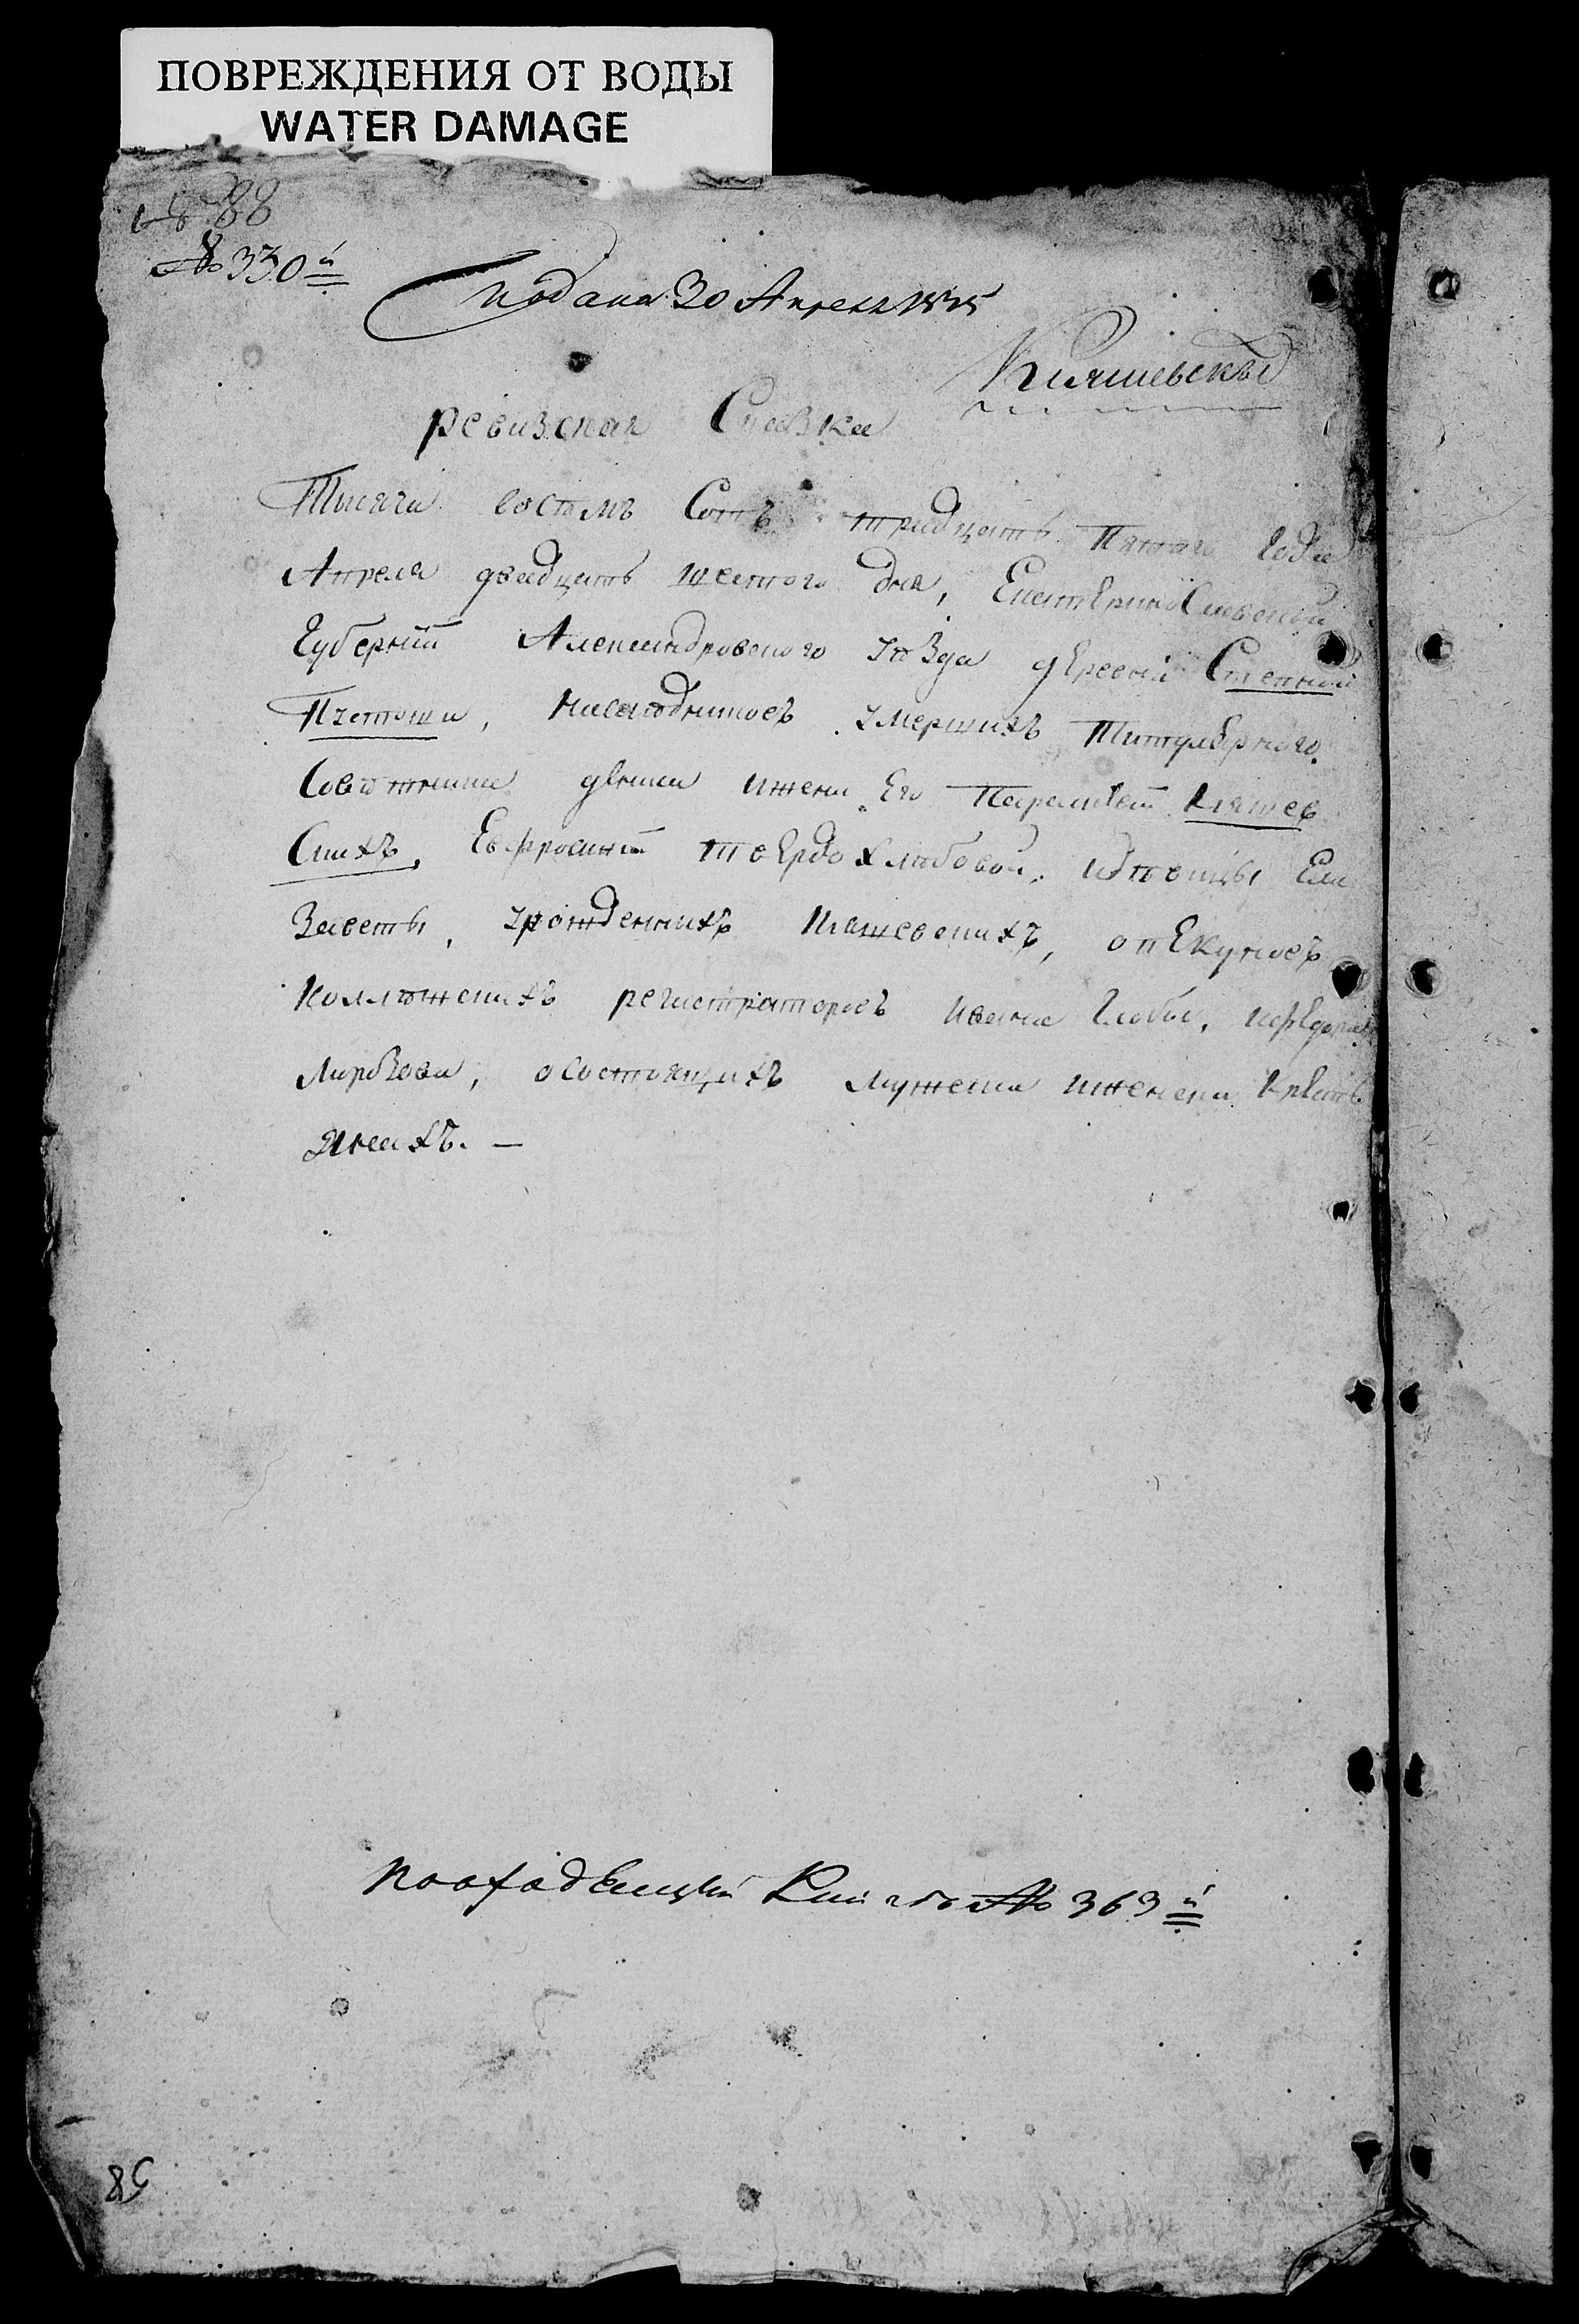 ПОВРЕЖДЕНИЯ ОТ ВОДЫ
WATER DAMAGE
88
№ 330й
Подана 30 Апреля 1835
Кияшевскъ
ревизская Сказка
Тысяча восемъ Сотъ тридцать Пятаго Года
Апреля двадцать шестого дня, ЕкатЕриноСлавской
Губернiи Александровского уѣзда дЕревни Степной
Пчетошки, наследниковъ умершихъ Титулярного
Совѣтника и жени Его Параскевiи Кияшев
Скихъ, Евфросинiи твЕрдоХлѣбовой, идѣвицы Ели
Заветы, урожденнихъ Кияшевскихъ, опЕкуновъ
Коллѣжскихъ регистраторовъ Ивана Глобы, и
о Состоящихъ мужеска и женска КрЕстъ
янахъ. —
По Книгѣ № 363й
85